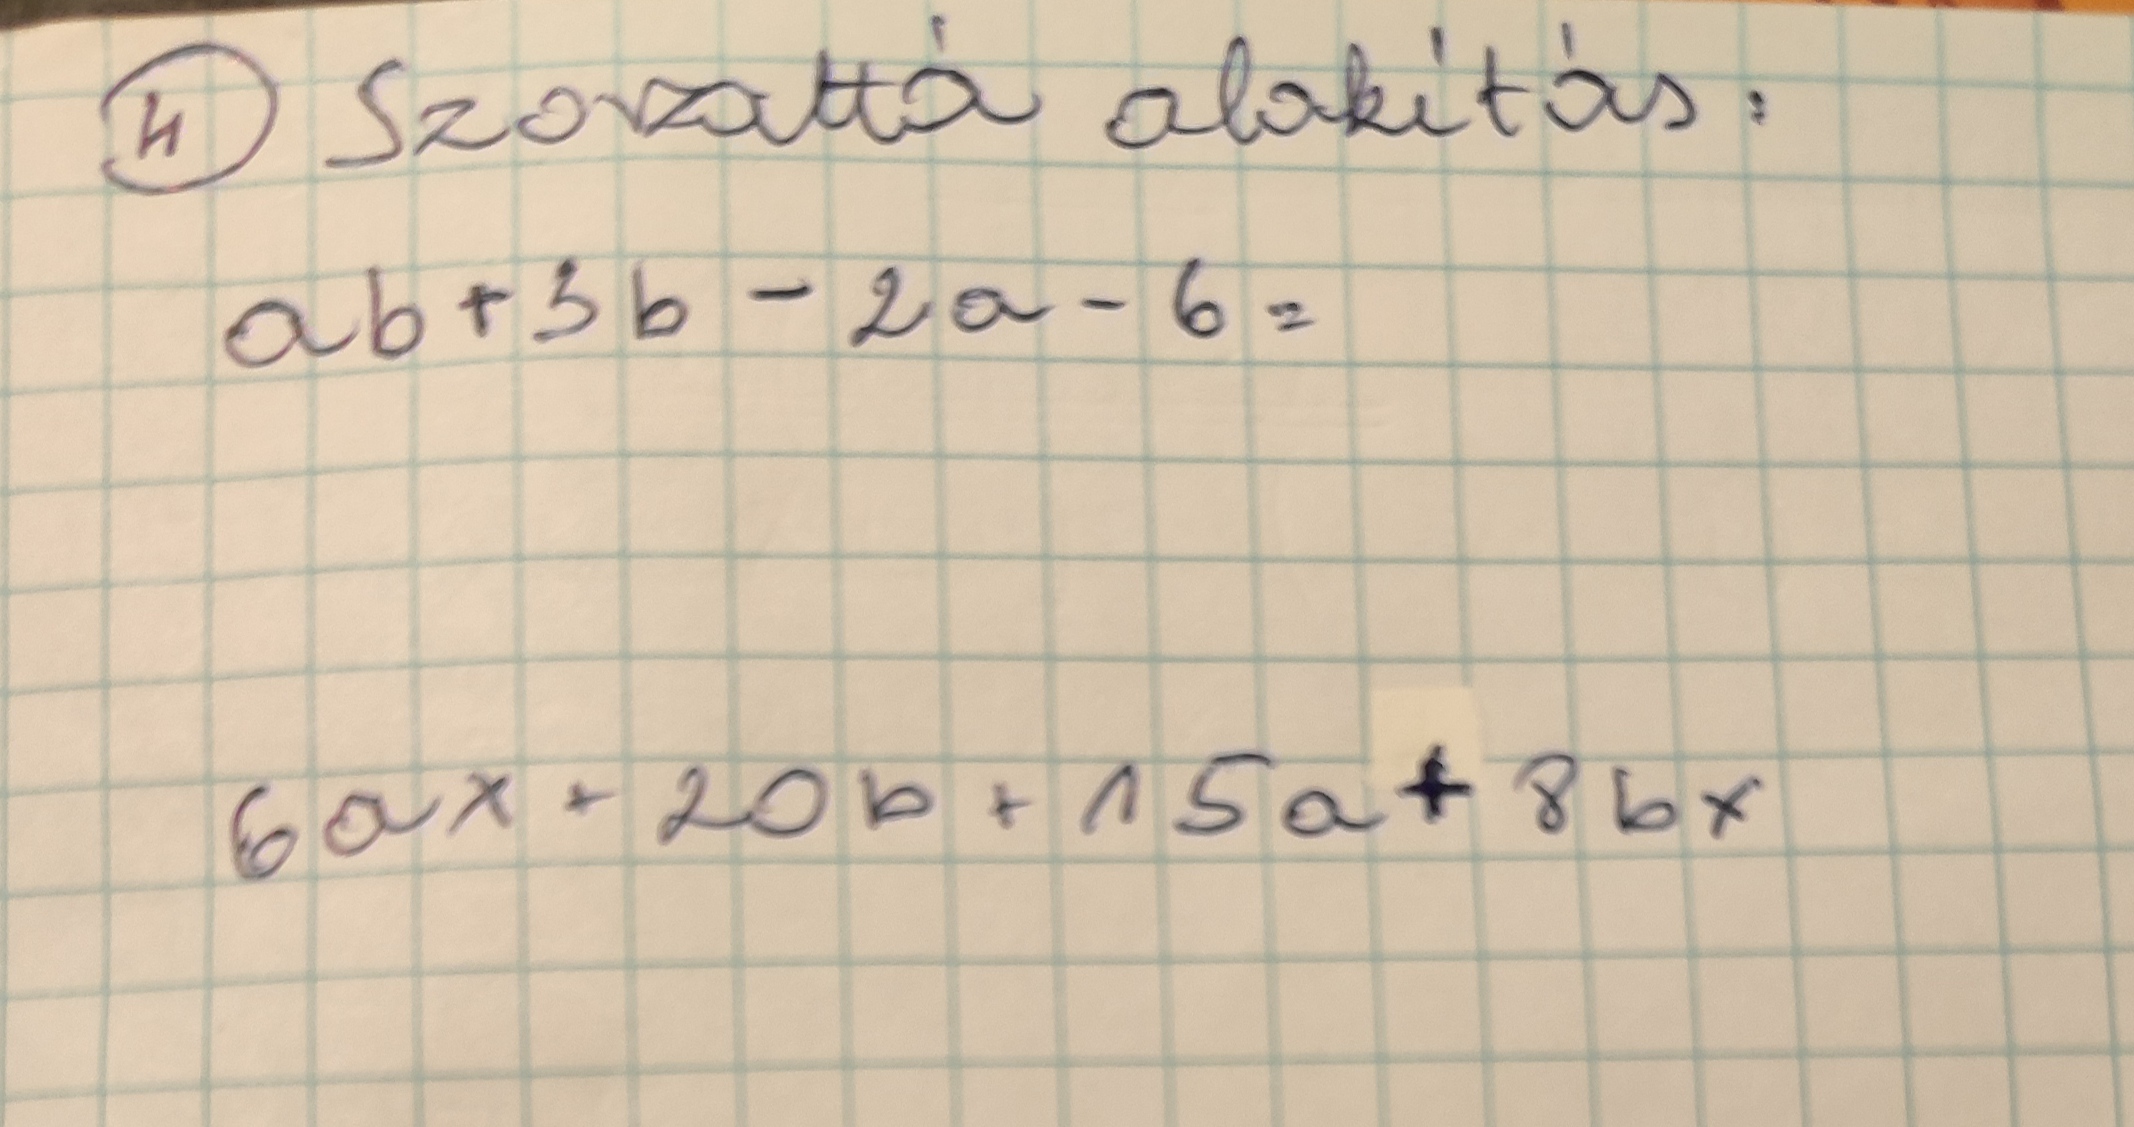 4 Szorzattá alakítás:
ab+3b-2a-6=
6ax+20b+15a+8bx